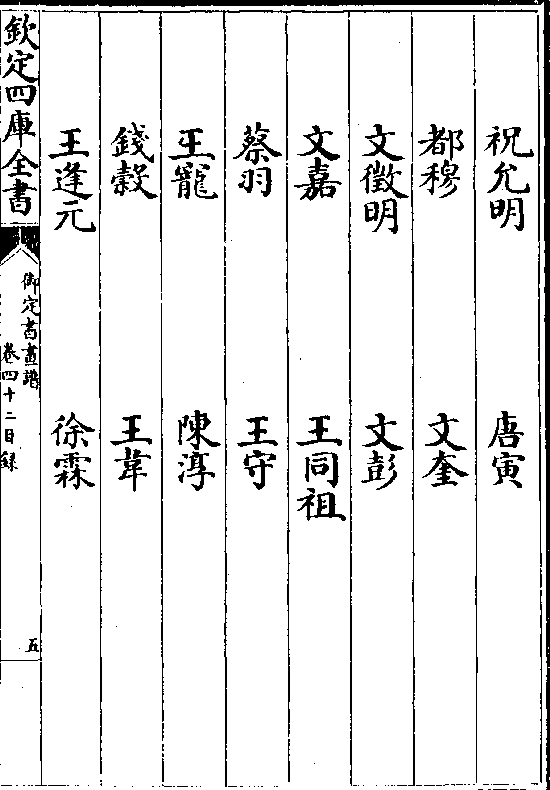 祝允明 唐寅
都穆 文奎
文徵明 文彭
文嘉 王同祖
蔡羽 王守
王寵 陳淳
錢穀 王韋
王逢元 徐霖
欽定四庫全書
御定書畫譜
卷四十二目録
五